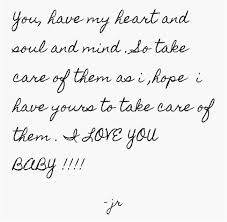 You, have my heart and
soul and mind. So take
care of them as i, hope i
have yours to take care of
them. I LOVE YOU
BABY !!!!
-jr